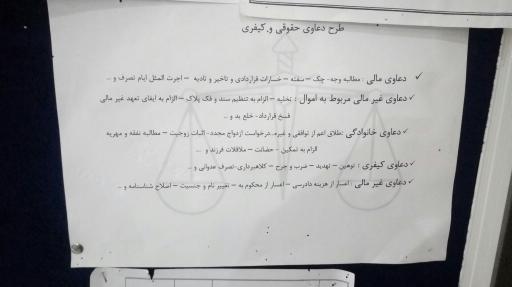 طرح دعاوی حقوقی و کیفری
✓ دعاوی مالی : مطالبه وجه- چک – سفته – خسارات قراردادی و تاخیر و تادیه – اجرت المثل ایام تصرف و ..
✓ دعاوی غیر مالی مربوط به اموال : تخلیه – الزام به تنظیم سند و فک پلاک – الزام به ایفای تعهد غیر مالی
فسخ قرارداد- خلع ید و ..
✓ دعاوی خانوادگی :طلاق اعم از توافقی و غیره..درخواست ازدواج مجدد- اثبات زوجیت – مطالبه نفقه و مهریه
الزام به تمکین – حضانت – ملاقات فرزند و ...
✓ دعاوی کیفری : توهین – تهدید – ضرب و جرح – کلاهبرداری-تصرف عدوانی و ..
✓ دعاوی غیر مالی : اعسار از هزینه دادرسی – اعسار از محکوم به – تغییر نام و جنسیت – اصلاح شناسنامه و ..